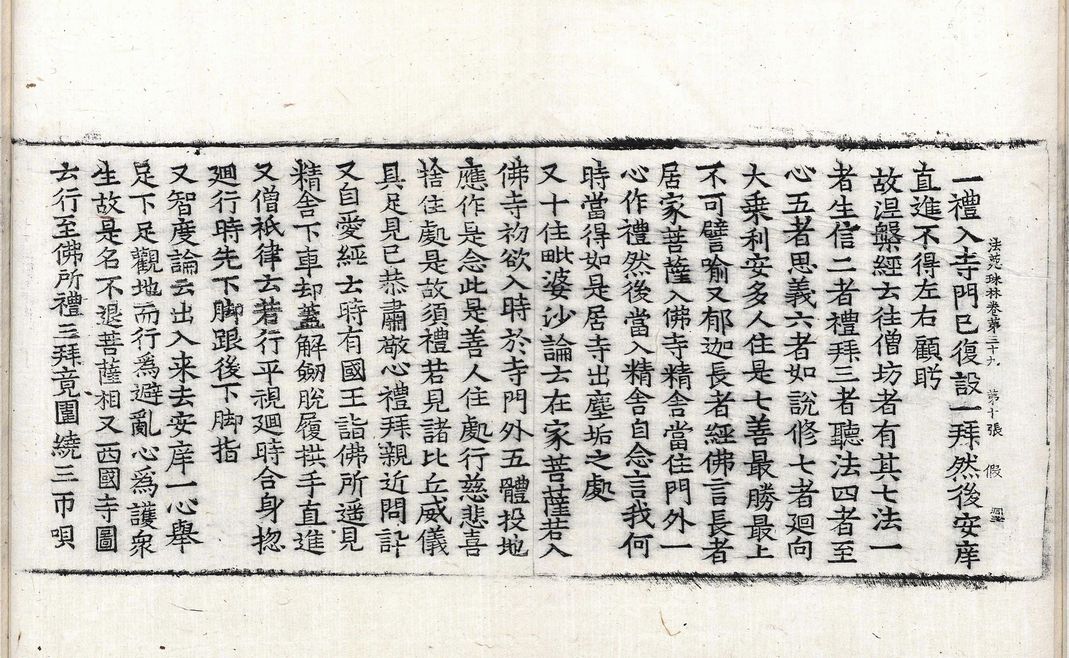 一禮入寺門已復設一拜然後安庠
直進不得左右顧眄
法苑珠林卷第三十九 第十張 假
故涅槃經云往僧坊者有其七法一
者生信二者禮拜三者聽法四者至
心五者思義六者如說修七者廻向
大乗利安多人住是七善最勝最上
不可譬喻又郁迦長者經佛言長者
居家菩薩入佛寺精舍當住門外一
心作禮然後當入精舍自念言我何
時當得如是居寺出塵垢之處
又十住毗婆沙論云在家菩薩若入
佛寺初欲入時於寺門外五體投地
應作是念此是善人住處行慈悲喜
捨住處是故須禮若見諸比丘威儀
具足見已恭肅敬心禮拜親近問訊
又自愛經云時有國王詣佛所遥見
精舍下車却蓋解劒脫履拱手直進
又僧祇律云若行平視廻時合身揔
廻行時先下脚跟後下脚指
又智度論云出入来去安庠一心舉
足下足觀地而行爲避亂心爲護衆
生故是名不退菩薩相又西國寺圖
云行至佛所禮三拜竟圍繞三帀唄